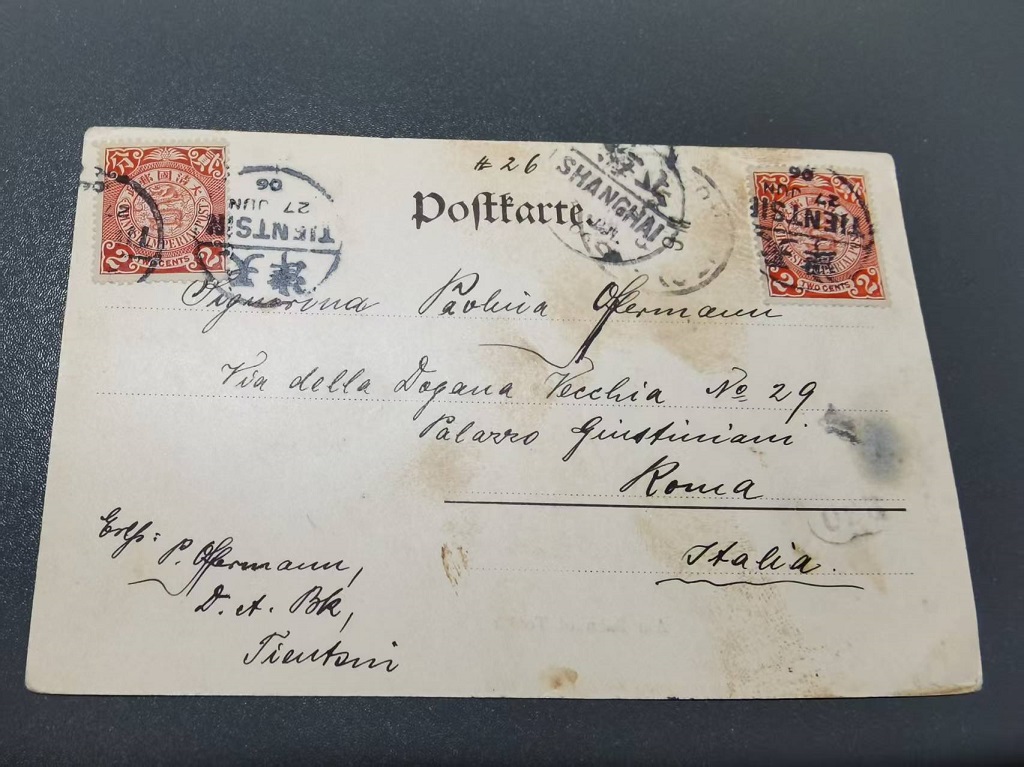 # 26
Postkarte.
大清國郵政
TWO CENTS
2 2
TIENTSIN
27 JUN
06
天津
SHANGHAI
上海
TIENTSIN
27 JUN
06
TWO CENTS
2 2
Signorina Paolina Offermann
Via della Dogana Vecchia No 29
Palazzo Giustiniani
Roma
Italia.
P. Offermann,
D. A. Bk,
Tientsin